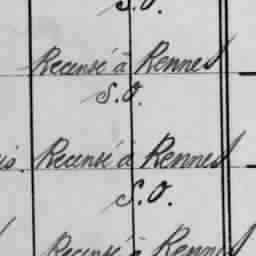 S.O.
Recensé à Rennes
S.O.
is. Recensé à Rennes
S.O.
Recensé à Rennes